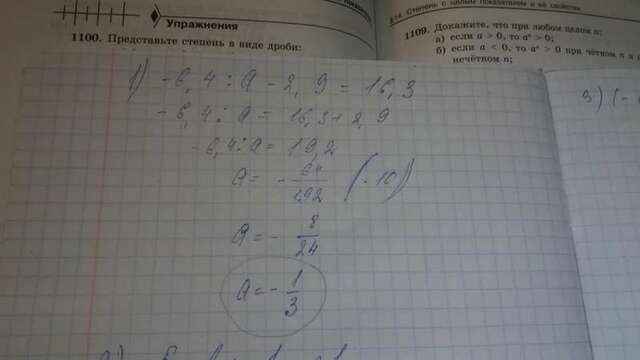 Упражнения
1100. Представьте степень в виде дроби:
§14. Степень с целым показателем и её свойства
1109. Докажите, что при любом целом n:
а) если a > 0, то aⁿ > 0;
б) если a < 0, то aⁿ > 0 при чётном n и
нечётном n;
1) -6,4 : a - 2,9 = 16,3
-6,4 : a = 16,3 + 2,9
-6,4 : a = 19,2
a = - 64/192 (·10)
a = - 8/24
a = - 1/3
3) (-